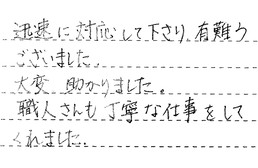 迅速に対応して下さり、有難う
ございました。
大変 助かりました。
職人さんも丁寧な仕事をして
くれました。